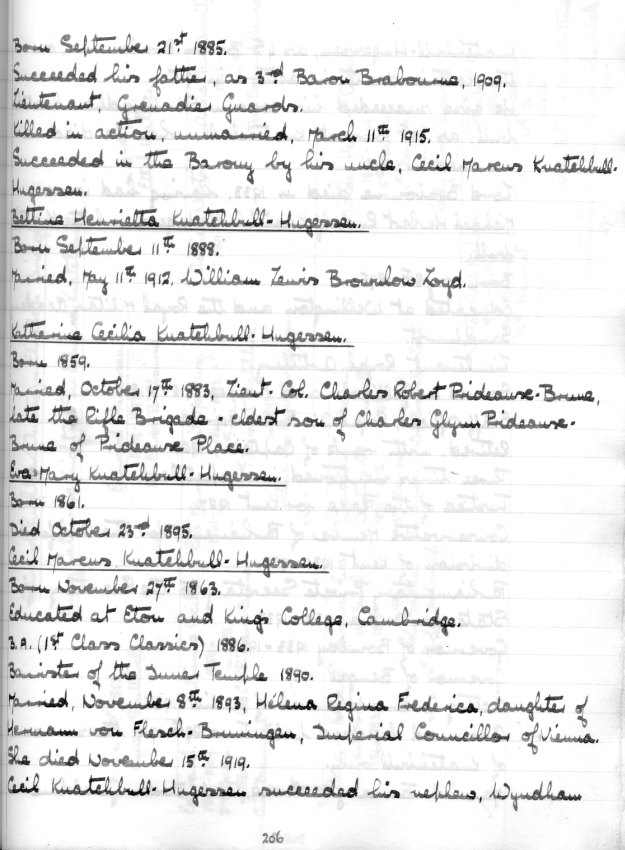 Born September 21st 1885.
Succeeded his father, as 3rd Baron Brabourne, 1909.
Lieutenant, Grenadier Guards.
Killed in action, unmarried, March 11th 1915.
Succeeded in the Barony by his uncle, Cecil Marcus Knatchbull-
Hugessen.
Bettina Henrietta Knatchbull-Hugessen.
Born September 11th 1888.
Married, May 11th 1912, William Lewis Brownlow Loyd.
Katherine Cecilia Knatchbull-Hugessen.
Born 1859.
Married, October 17th 1883, Lieut. Col. Charles Robert Prideaux-Brune,
late the Rifle Brigade - eldest son of Charles Glynn Prideaux-
Brune of Prideaux Place.
Eva Mary Knatchbull-Hugessen.
Born 1861.
Died October 23rd 1895.
Cecil Marcus Knatchbull-Hugessen.
Born November 27th 1863.
Educated at Eton and Kings College, Cambridge.
B.A. (1st Class Classics) 1886.
Barrister of the Inner Temple 1890.
Married, November 8th 1893, Hélena Regina Frederica, daughter of
Hermann von Flesch-Bruningen, Imperial Councillor of Vienna.
She died November 15th 1919.
Cecil Knatchbull-Hugessen succeeded his nephew, Wyndham
206